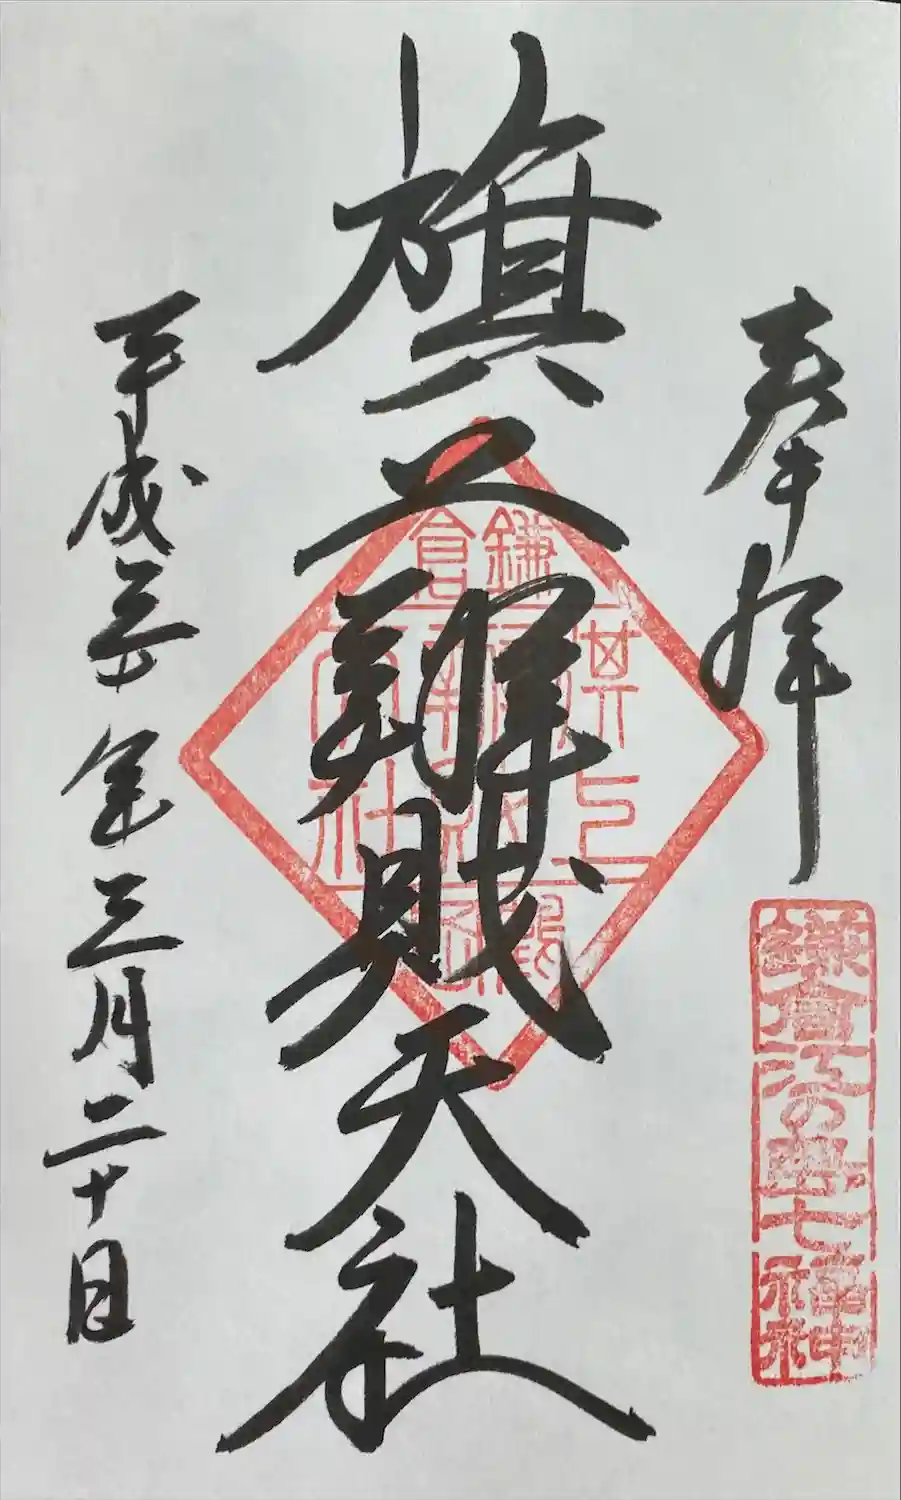 奉拝
鎌倉江の島七福神
旗上辨財天社
鎌倉
旗上
社
平成三十年三月二十日